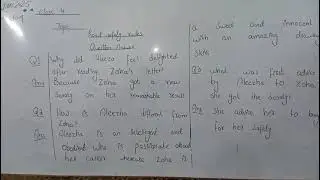 Class 4
Topic
Road safety rules
Question Answers
Q1 Why did Alveza feel delighted
after reading Zoha's letter?
Ans Because Zoha got a new
Scooty on her remarkable result
Q2 How is Aleezha different from
Zoha?
Ans Aleezha is an intelligent and
Obedient who is passionate about
her career whereas Zoha is
a Sweet and innocent
with an amazing drawing
Skills
Q3 what was first advice
by Aleezha to Zoha
She got the Scooty?
Ans She advice her to buy
for her safety